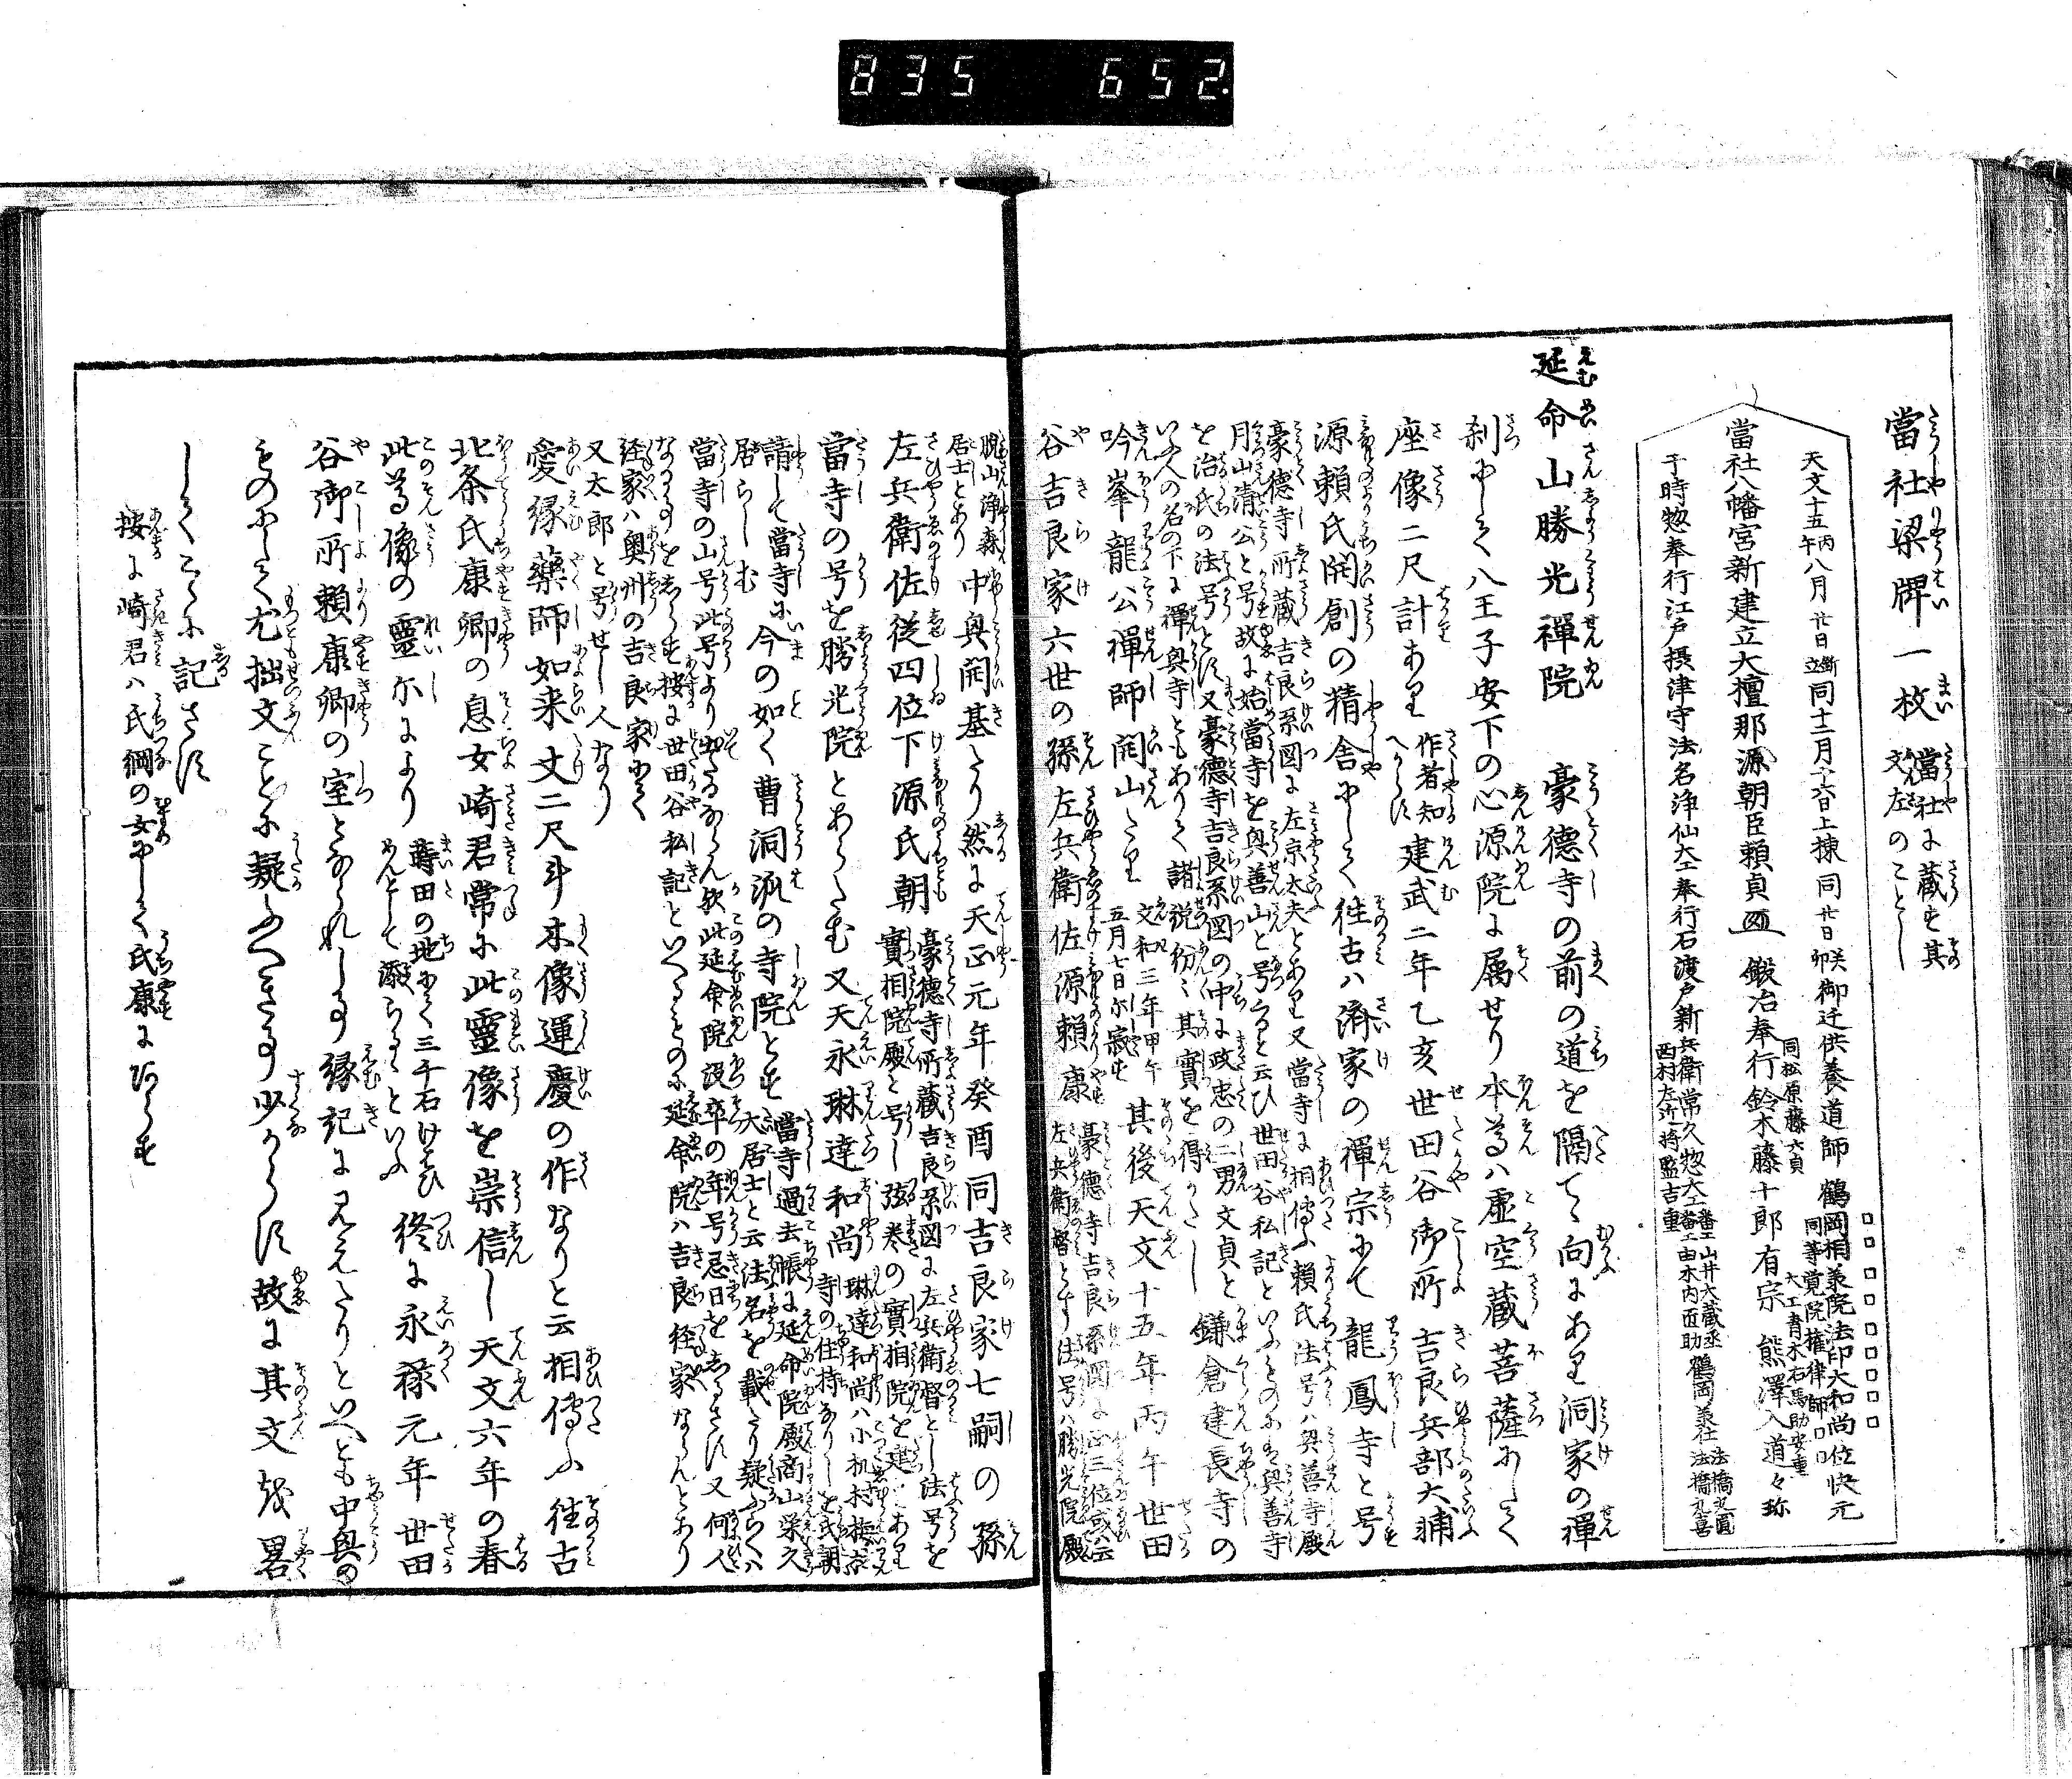 835 652
當社梁牌一枚 當社に蔵す其文左のことし
天文十五丙午八月廿日斷立同十二月六日上棟同廿日癸卯御迁供養道師 鶴岡相兼院法印大和尚位快元 同等覚院権律師□□ □□□□□□□
當社八幡宮新建立大檀那源朝臣頼貞 鍛冶奉行鈴木藤十郎有宗 熊澤入道々珎 同松原藤六貞 大工青木右馬助安重
于時惣奉行江戸摂津守法名浄仙大工奉行石渡戸新兵衛常久惣大工 番工山井大蔵丞 番工由木内匠助 鶴岡美社 西村左近将監吉重
延命山勝光禪院 豪徳寺の前の道を隔て向にあり洞家の禪
刹にして八王子安下の心源院に属せり本尊ハ虚空蔵菩薩にして
座像二尺計あり 作者知へからす 建武二年乙亥世田谷御所 吉良兵部大輔
源頼氏開創の精舎にして徃古ハ済家の禪宗にて龍鳳寺と号
豪徳寺所蔵吉良系図に左京太夫とあり又當寺に相傳ふ頼氏法号ハ興善寺殿
月山清公と号故に始當寺を興善山と号ると云ひ世田谷私記といふものにも興善寺
を治氏の法号とす又豪徳寺吉良系図の中に政忠の二男文貞と
いふ人の名の下に禪興寺ともありて諸説紛々其實を得かたし 鎌倉建長寺の
吟峯龍公禪師開山たり 文和三年甲午五月七日示寂す 其後天文十五年丙午世田
谷吉良家六世の孫左兵衛佐源頼康 豪徳寺吉良系図に正三位或ハ云左兵衛督とす法号ハ勝光院殿
脱山浄森居士とあり 中興開基たり然に天正元年癸酉同吉良家七嗣の孫
左兵衛佐従四位下源氏朝 豪徳寺所蔵吉良系図に左兵衛督とし法号を實相院殿と号し弦巻の實相院を建とあり
當寺の号を勝光院とあらたむ又天永琳達和尚 琳達和尚ハ小机村
請して當寺に今の如く曹洞派の寺院とす 寺の住持なりしを氏朝
居らしむ 當寺過去帳に延命院殿商山栄久大居士と云法名を載たり疑ふらくハ
當寺の山号此号より出るならん歟此延命院没卒の年号忌日をしるさす又何人
なる事をしらす按に世田谷私記といへるものに延命院ハ吉良経家ならんとあり
経家ハ奥州の吉良家にて
又太郎と号せし人なり
愛縁藥師如来 丈二尺斗木像運慶の作なりと云相傳ふ徃古
北条氏康卿の息女崎君常に此靈像を崇信し天文六年の春
此尊像の靈示により 蒔田の地にて三千石けはひめんとして潑らるといふ 終に永禄元年世田
谷御所頼康卿の室となられし事縁記に見えたりといへとも中興の
ものにして尤拙文ことに疑ふへき事少からす故に其文 越畧
してこゝに記さす
按に崎君ハ氏綱の女にして氏康にあらす